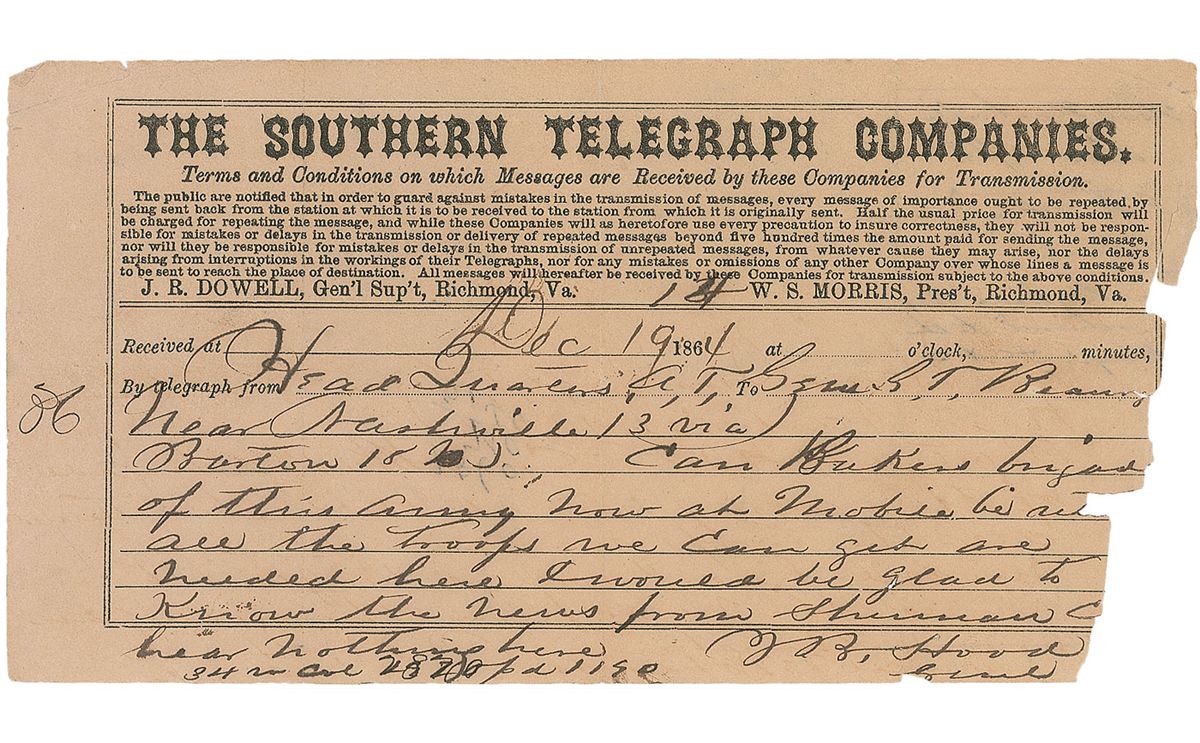 THE SOUTHERN TELEGRAPH COMPANIES.
Terms and Conditions on which Messages are Received by these Companies for Transmission.
The public are notified that in order to guard against mistakes in the transmission of messages, every message of importance ought to be repeated, by
being sent back from the station at which it is to be received to the station from which it is originally sent. Half the usual price for transmission will
be charged for repeating the message, and while these Companies will as heretofore use every precaution to insure correctness, they will not be respon-
sible for mistakes or delays in the transmission or delivery of repeated messages beyond five hundred times the amount paid for sending the message,
nor will they be responsible for mistakes or delays in the transmission of unrepeated messages, from whatever cause they may arise, nor the delays
arising from interruptions in the workings of their Telegraphs, nor for any mistakes or omissions of any other Company over whose lines a message is
to be sent to reach the place of destination. All messages will hereafter be received by these Companies for transmission subject to the above conditions.
J. R. DOWELL, Gen'l Sup't, Richmond, Va. W. S. MORRIS, Pres't, Richmond, Va.
Received at Dec 19 1864 at o'clock, minutes,
By telegraph from Head Quarters A, T, To Genl G, T, Beaureg
Near Nashville 13 via
Barton 18 Can Bakers brigad
of this army now at Mobile be
all the troops we can get are
needed here I would be glad to
Know the news from Sherman
hear nothing here J B, Hood
34 Genl